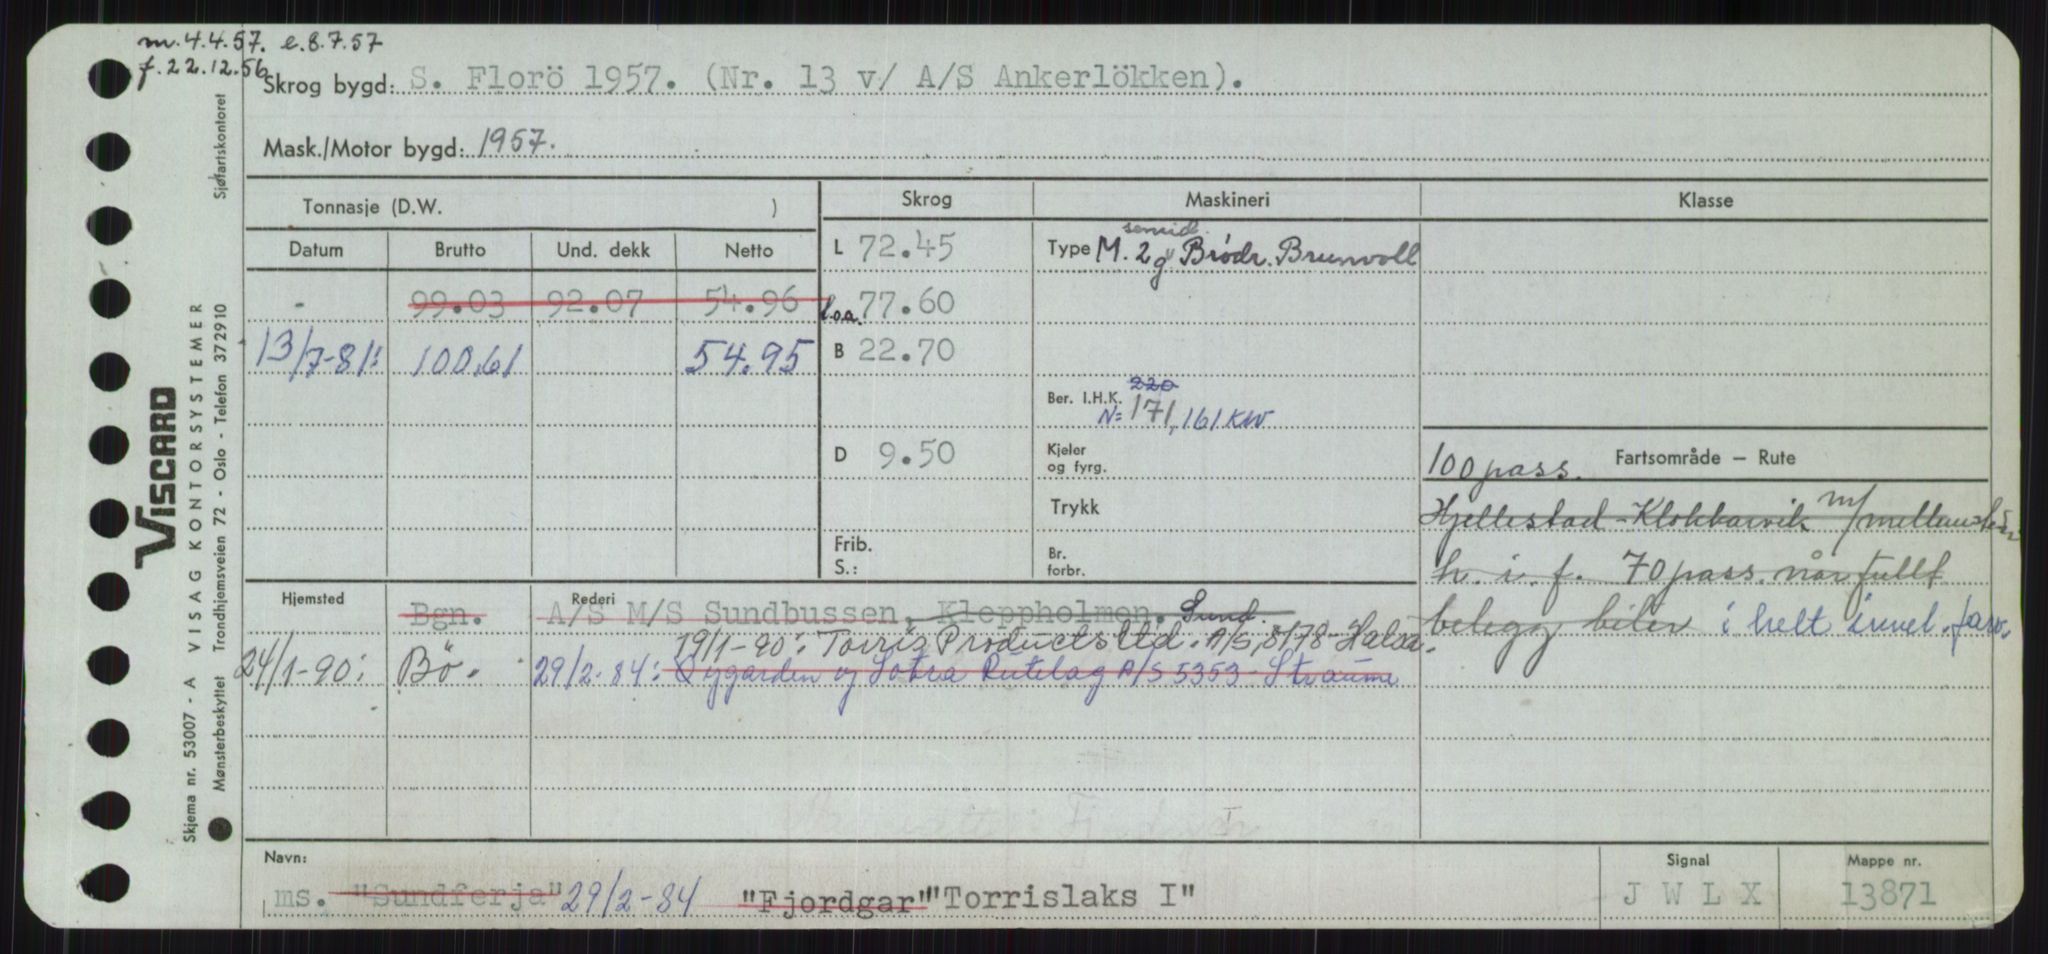 m. 4.4.57. e. 8.7.57
f. 22.12.56
Skrog bygd: S. Florö 1957. (Nr. 13 v/ A/S Ankerlökken).
Mask./Motor bygd: 1957.
Tonnasje (D.W. )
Skrog
Maskineri
Klasse
Datum Brutto Und. dekk Netto
L 72.45
Type M. 2 g semid. Brødr. Brunvoll
- 99.03 92.07 54.96
l.o.a. 77.60
13/7-81: 100,61 54.95
B 22.70
Ber. I.H.K. 220
N= 171, 161 KW
D 9.50
Kjeler
og fyrg.
100 pass. Fartsområde — Rute
Trykk
Hjellestad - Klokkarvik m/
Frib.
S.:
Br.
forbr.
h. i. f. 70 pass. når fullt
Hjemsted
Rederi
Bgn. A/S M/S Sundbussen, Kleppholmen. Sund.
belegg biler i helt innel. farv.
19/1-90: Torris Products Ltd. A/S, 8178-Halsa.
24/1-90: Bö. 29/2-84: Øygarden og Sotra Rutelag A/S 5353-Straume
Navn:
ms. "Sundferja" 29/2-84 "Fjordgar" "Torrislaks I"
Signal
J W L X
Mappe nr.
13871
VISCARD
Skjema nr. 53007 - A VISAG KONTORSYSTEMER
Mønsterbeskyttet Trondhjemsveien 72 - Oslo - Telefon 372910
Sjøfartskontoret